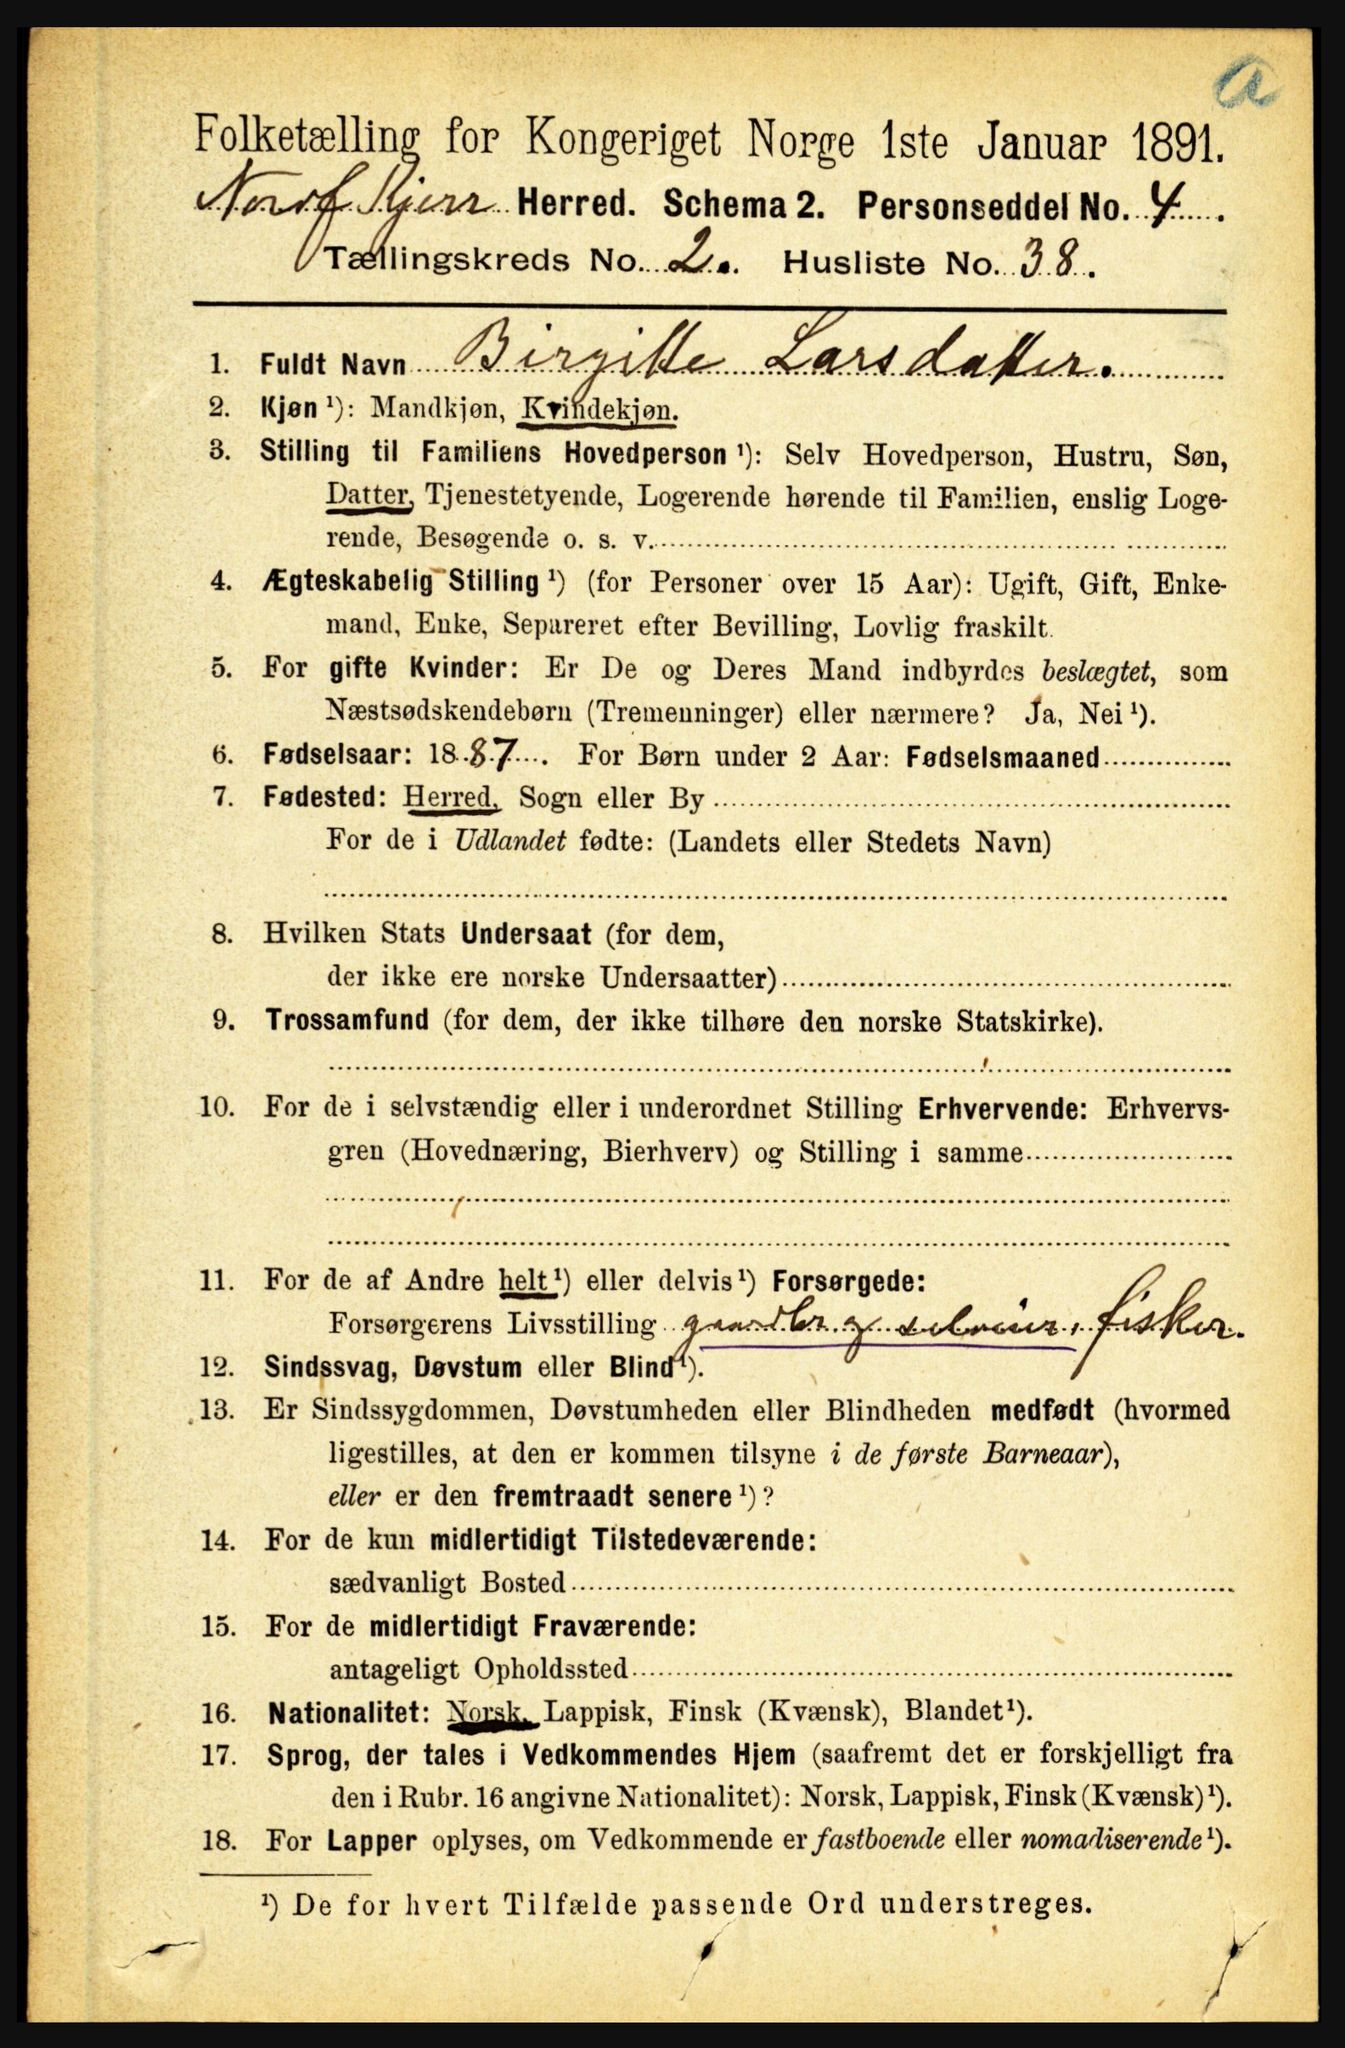 a
Folketælling for Kongeriget Norge 1ste Januar 1891.
Herred. Schema 2. Personseddel No. 4.
Tællingskreds No. 2. Husliste No. 38.
1. Fuldt Navn Birgitte Larsdatter.
2. Kjøn ¹): Mandkjøn, Kvindekjøn.
3. Stilling til Familiens Hovedperson ¹): Selv Hovedperson, Hustru, Søn,
Datter, Tjenestetyende, Logerende hørende til Familien, enslig Loge-
rende, Besøgende o. s. v.
4. Ægteskabelig Stilling ¹) (for Personer over 15 Aar): Ugift, Gift, Enke-
mand, Enke, Separeret efter Bevilling, Lovlig fraskilt.
5. For gifte Kvinder: Er De og Deres Mand indbyrdes beslægtet, som
Næstsødskendebørn (Tremenninger) eller nærmere? Ja, Nei ¹).
6. Fødselsaar: 1887. For Børn under 2 Aar: Fødselsmaaned
7. Fødested: Herred, Sogn eller By
For de i Udlandet fødte: (Landets eller Stedets Navn)
8. Hvilken Stats Undersaat (for dem,
der ikke ere norske Undersaatter)
9. Trossamfund (for dem, der ikke tilhøre den norske Statskirke).
10. For de i selvstændig eller i underordnet Stilling Erhvervende: Erhvervs-
gren (Hovednæring, Bierhverv) og Stilling i samme
11. For de af Andre helt ¹) eller delvis ¹) Forsørgede:
Forsørgerens Livsstilling gaardbr. og selveier, fisker.
12. Sindssvag, Døvstum eller Blind ¹).
13. Er Sindssygdommen, Døvstumheden eller Blindheden medfødt (hvormed
ligestilles, at den er kommen tilsyne i de første Barneaar),
eller er den fremtraadt senere ¹)?
14. For de kun midlertidigt Tilstedeværende:
sædvanligt Bosted
15. For de midlertidigt Fraværende:
antageligt Opholdssted
16. Nationalitet: Norsk, Lappisk, Finsk (Kvænsk), Blandet ¹).
17. Sprog, der tales i Vedkommendes Hjem (saafremt det er forskjelligt fra
den i Rubr. 16 angivne Nationalitet): Norsk, Lappisk, Finsk (Kvænsk) ¹).
18. For Lapper oplyses, om Vedkommende er fastboende eller nomadiserende ¹).
¹) De for hvert Tilfælde passende Ord understreges.